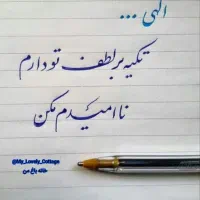 الهی ...
تکیه بر لطف تو دارم
ناامیدم مکن
@My_Lovely_Cottage
خانه باغ من